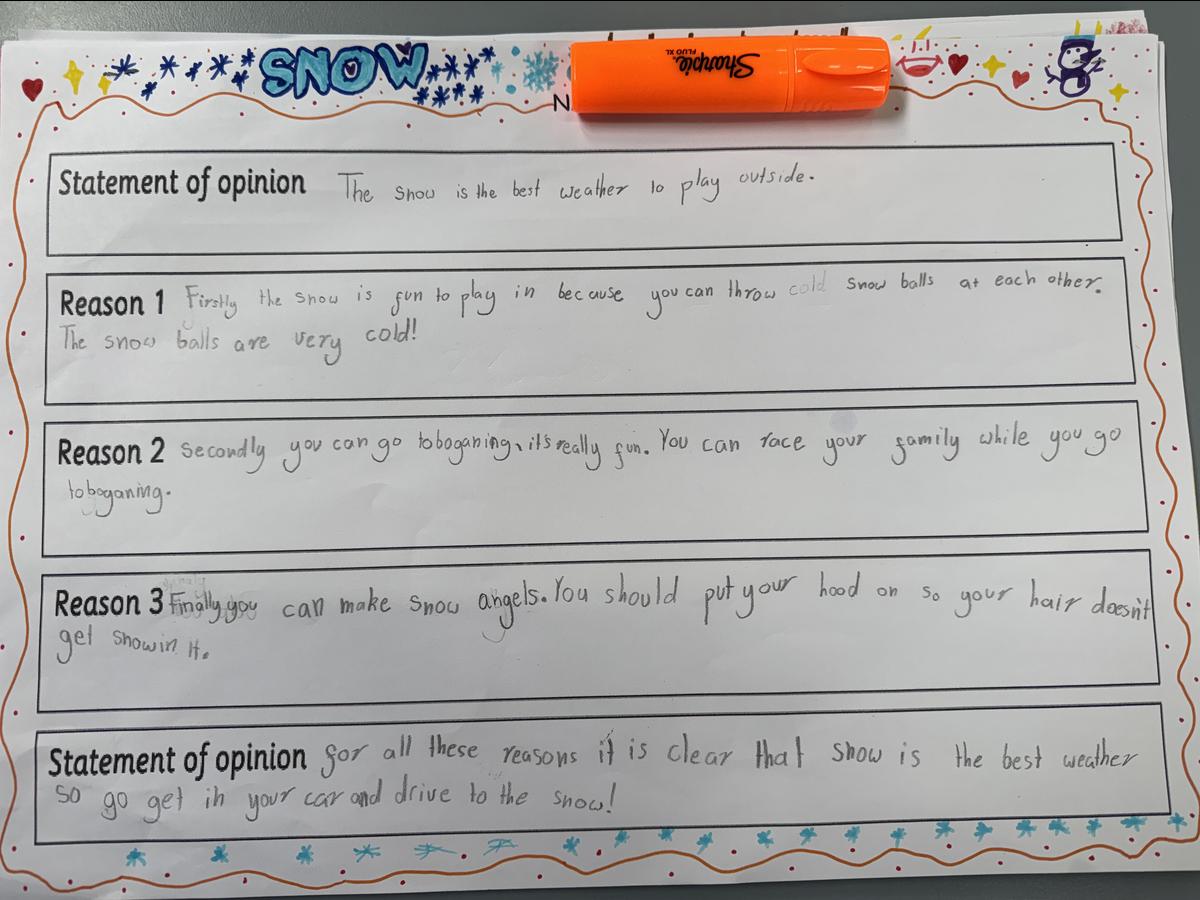 SNOW
Sharpie
FLUO XL
N
Statement of opinion The snow is the best weather to play outside.
Reason 1 Firstly the snow is fun to play in because you can throw cold snow balls at each other.
The snow balls are very cold!
Reason 2 Secondly you can go toboganing, it's really fun. You can race your family while you go
toboganing.
Reason 3 Finally you can make snow angels. You should put your hood on so your hair doesn't
get snow in it.
Statement of opinion for all these reasons it is clear that snow is the best weather
so go get in your car and drive to the snow!